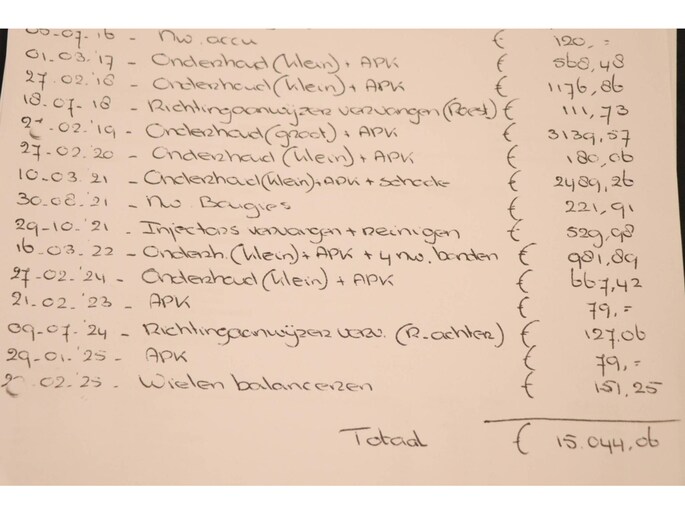 -07.'16 - Nw. accu € 120,=
01.03.'17 - Onderhoud (klein) + APK € 568,48
27.02.'18 - Onderhoud (klein) + APK € 1176,86
18.07-18 - Richtingaanwijzer vervangen € 111,73
.02.'19 - Onderhoud (groot) + APK € 3139,57
27-02.'20 - Onderhoud (klein) + APK € 180,06
10-03.'21 - Onderhoud (klein) + APK + schade € 2489,26
30-08.'21 - Nw Bougies € 221,91
29-10.'21 - Injectors vervangen + Reinigen € 529,98
16-03.'22 - Onderh. (klein) + APK + 4 nw. banden € 981,89
27-02.'24 - Onderhoud (klein) + APK € 667,42
21-02.'23 - APK € 79,=
09-07.'24 - Richtingaanwijzer verv. (R. achter) € 127,06
29-01.'25 - APK € 79,=
.02.'25 - Wielen balanceren € 151,25
Totaal € 15.044,06